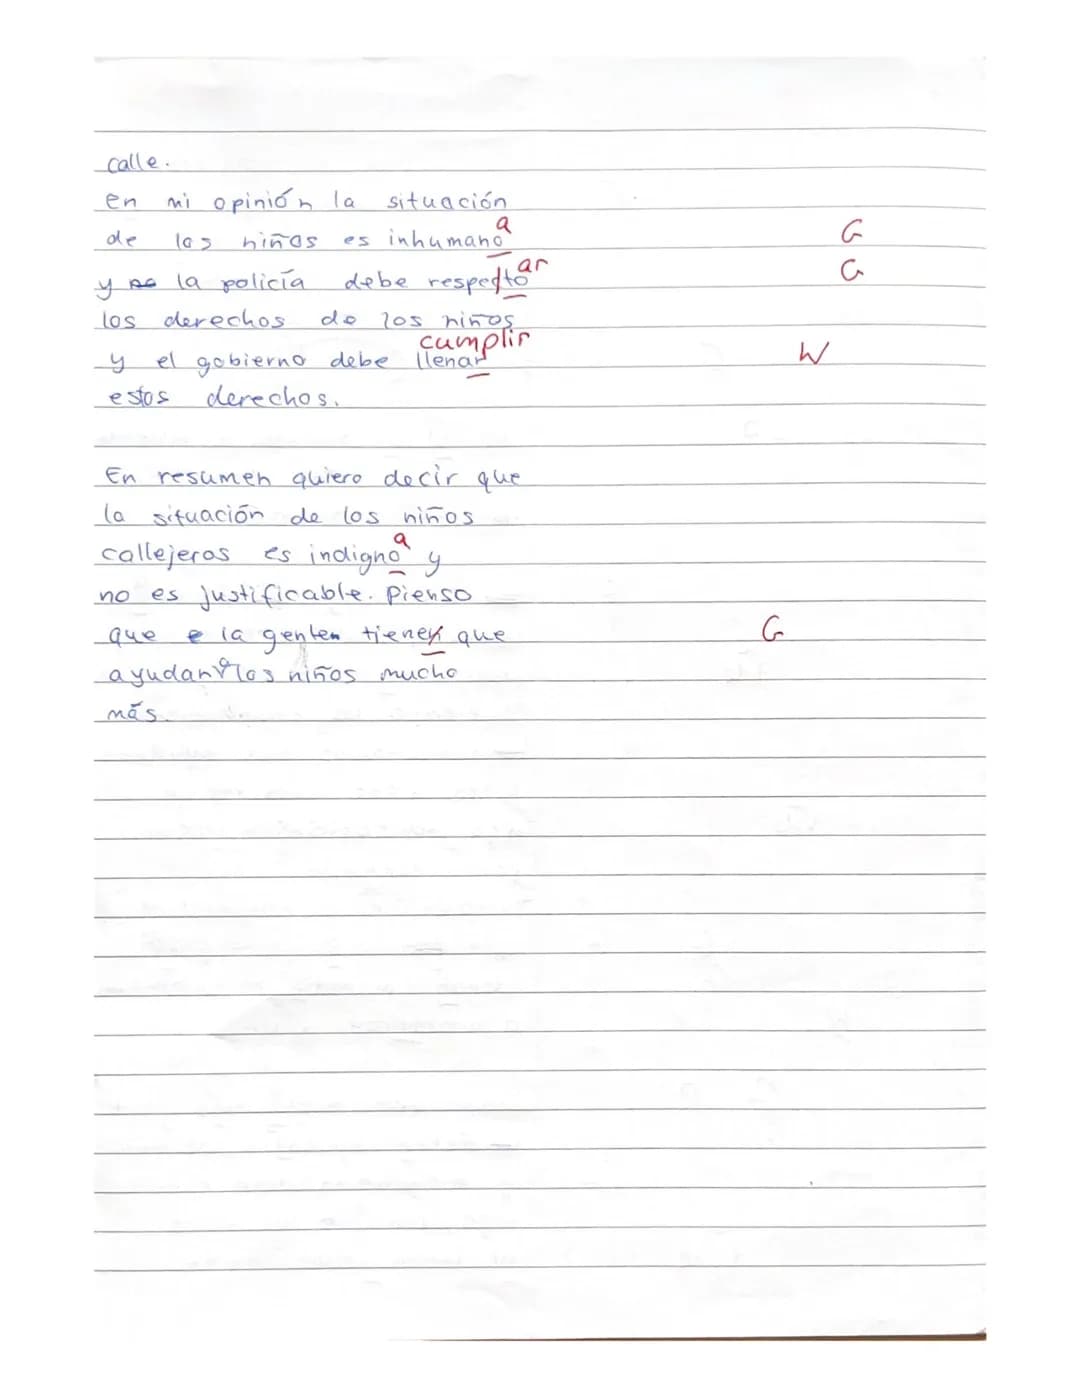 calle.
en mi opinión la situación
a
de los niños es inhumano G
ar
y la policía debe respecto G
los derechos de los niños
cumplir
y el gobierno debe llenar W
estos derechos.
En resumen quiero decir que
la situación de los niños
a
callejeros es indigno y
no es justificable. Pienso
que la gente tienen que G
ayudar los niños mucho
más.